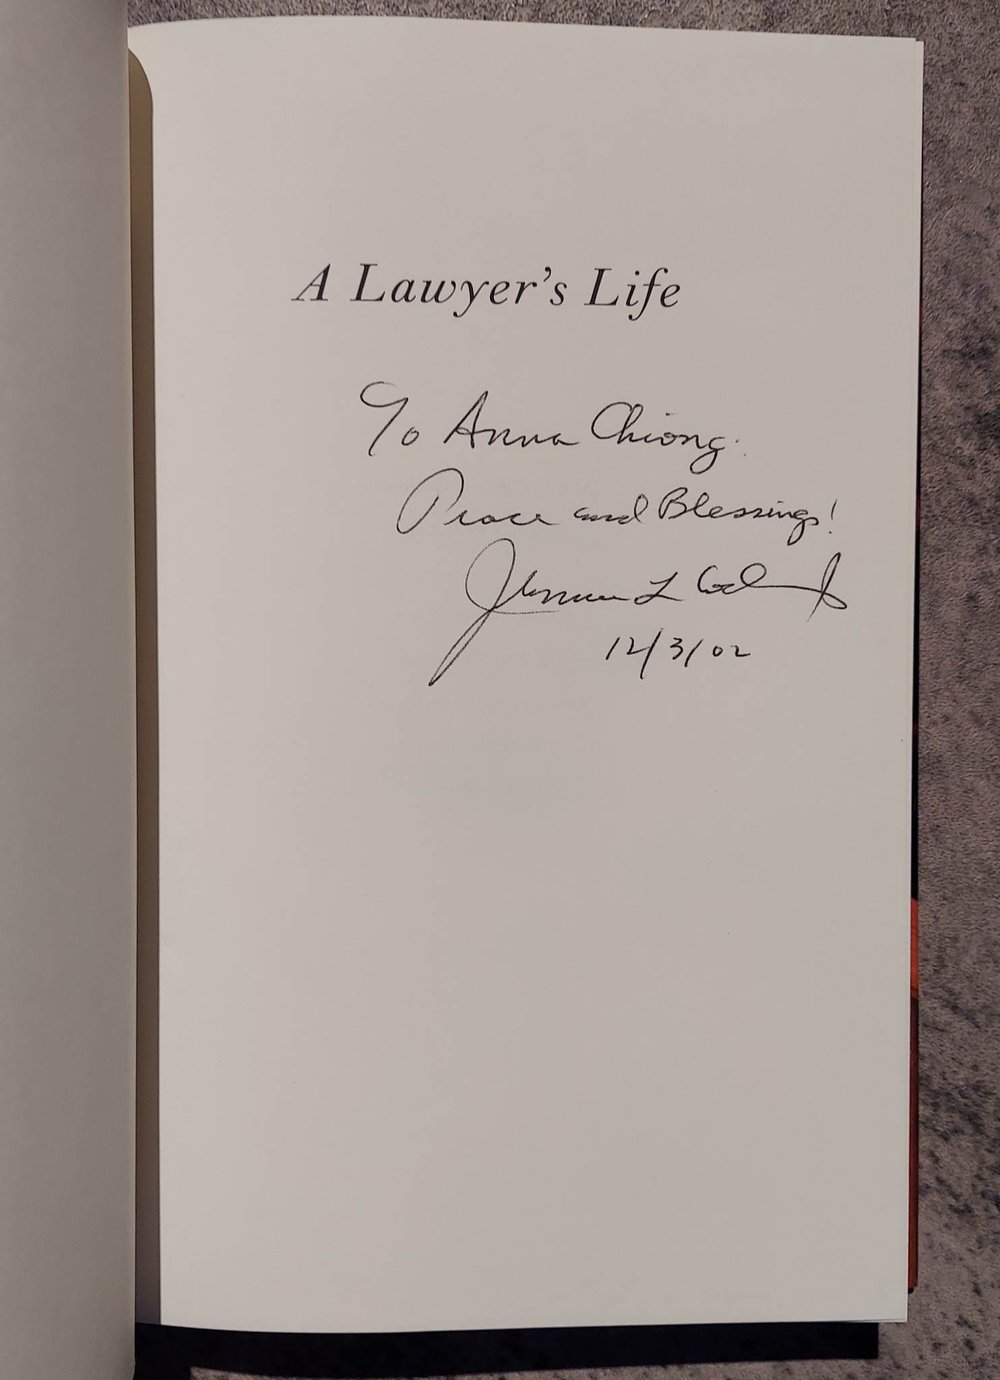 A Lawyer's Life
To Anna Chiong.
Peace and Blessings!
Johnnie L Cochran Jr
12/3/02